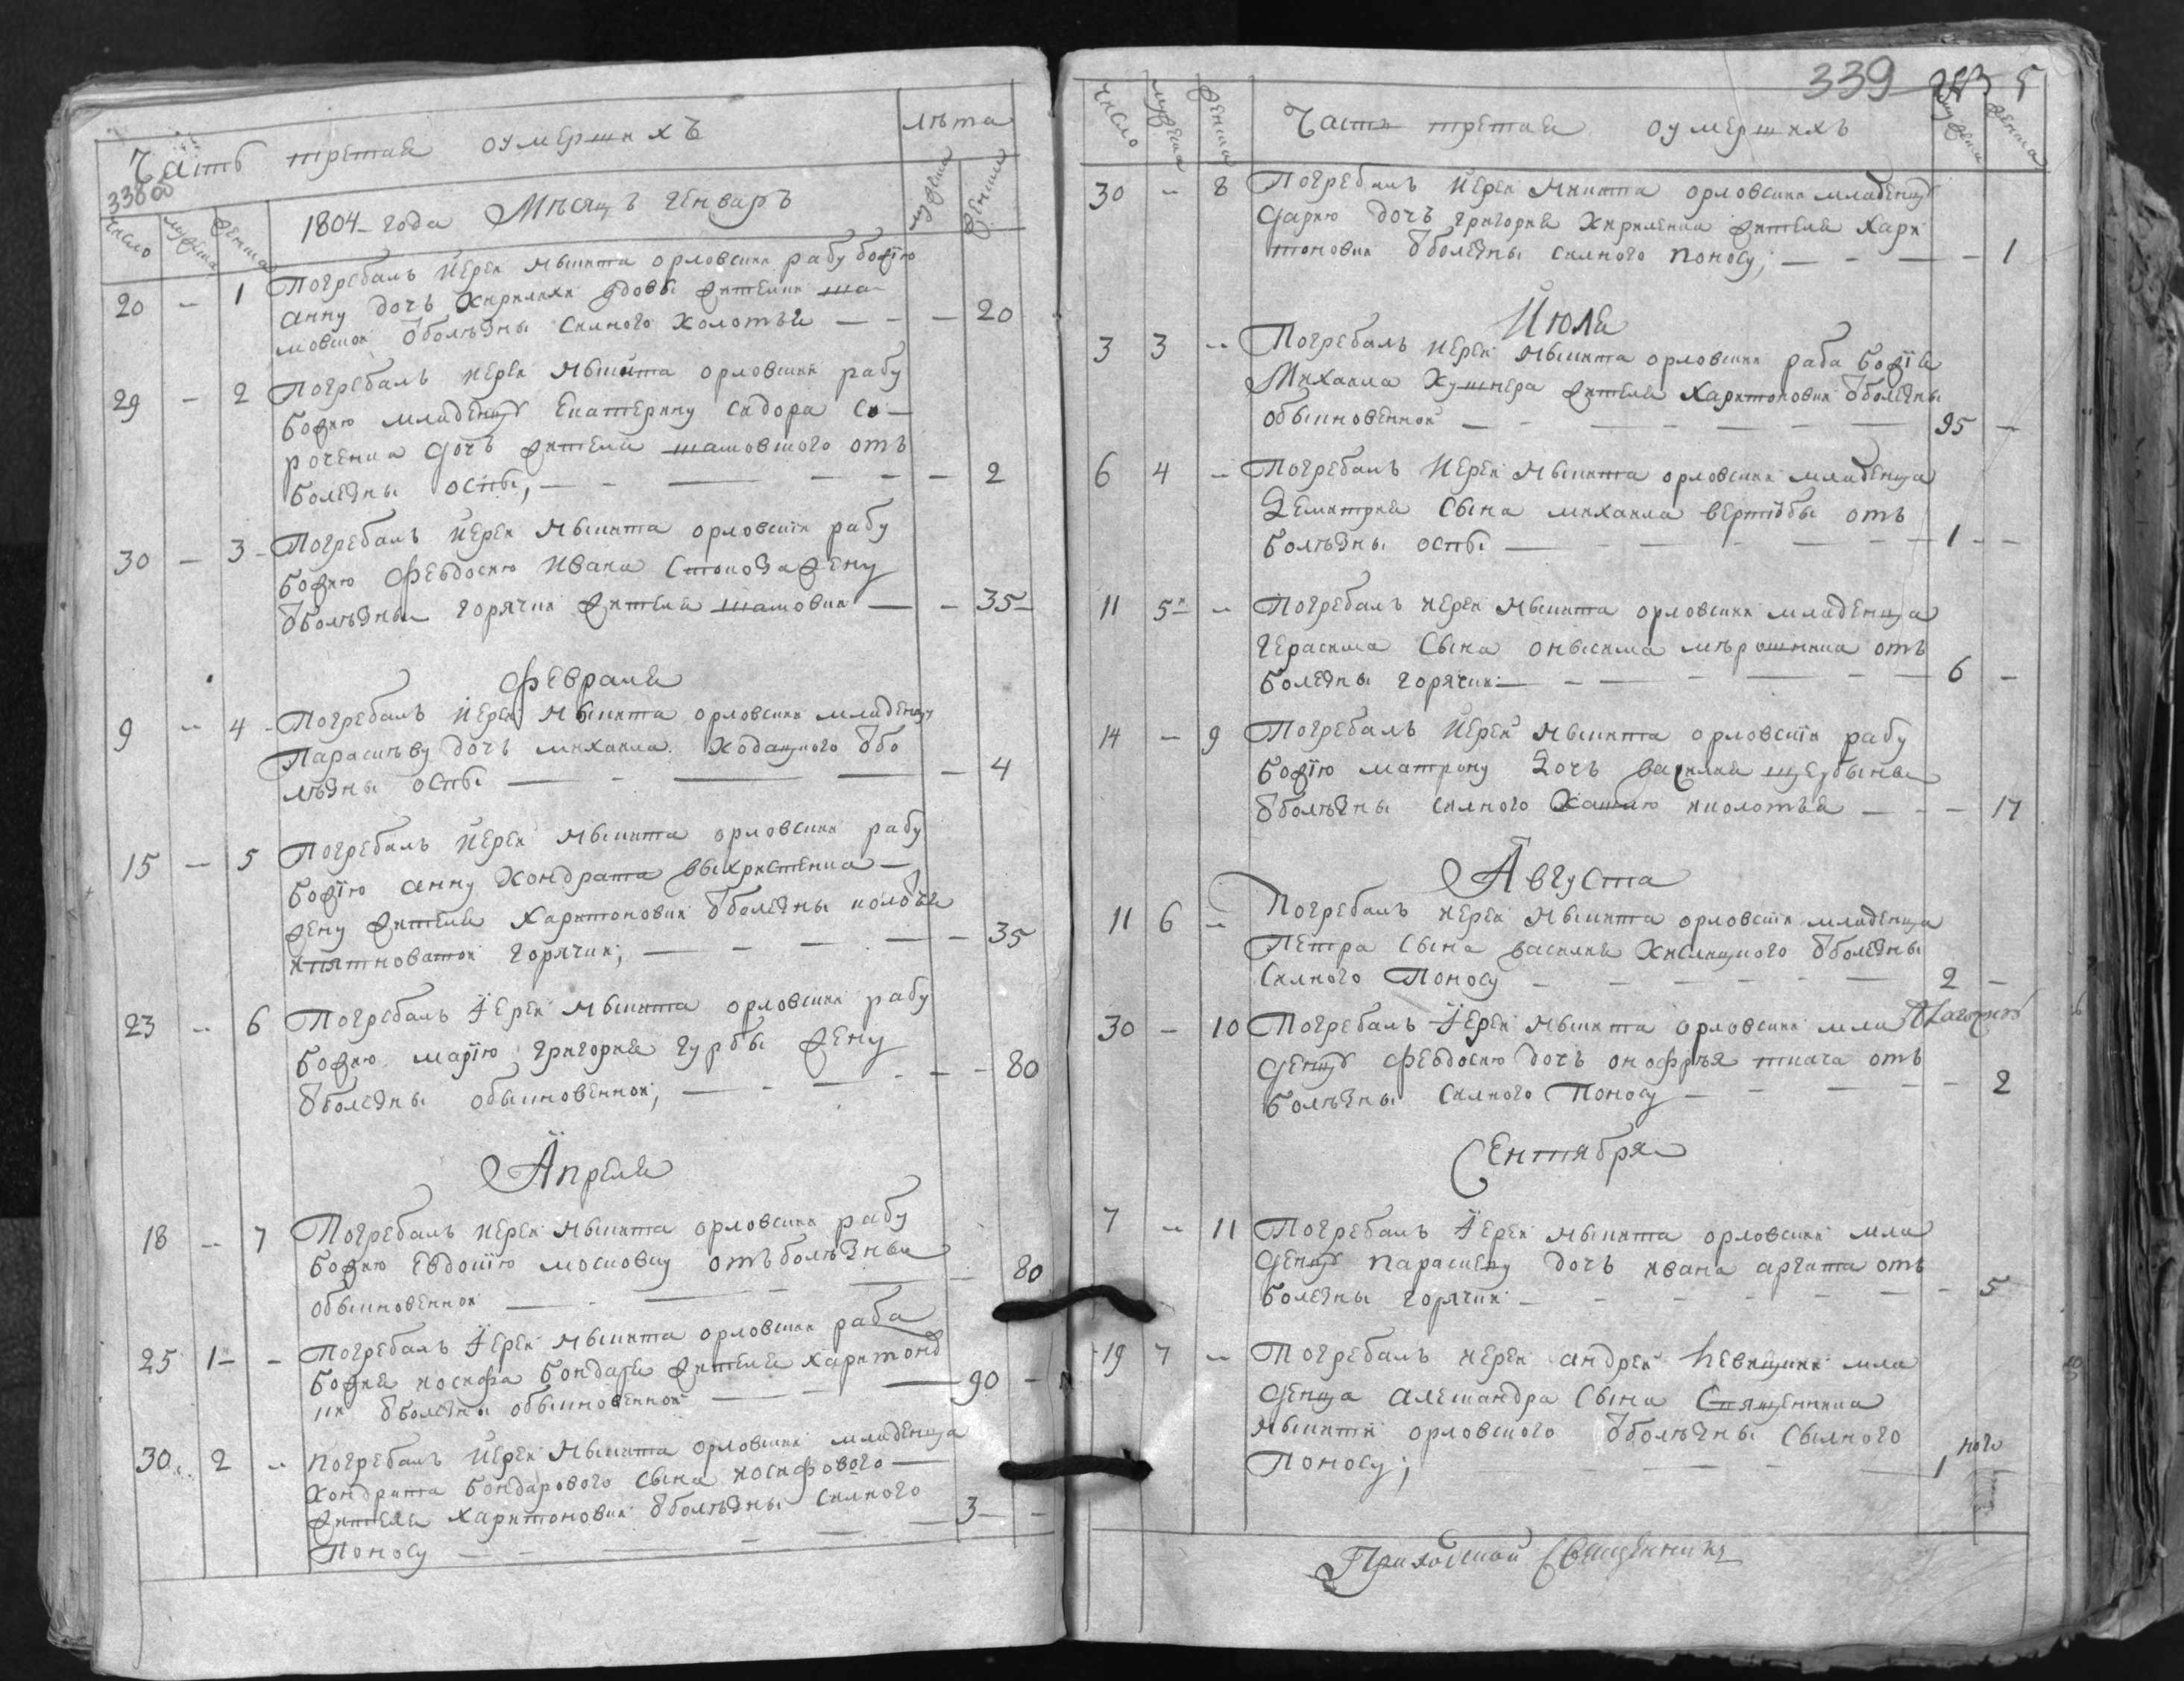 Часть третая оумершихъ
лѣта
338 об
число мужеска женска
1804 года Мѣсяцъ генваръ
мужеска женска
20 - 1 Погребалъ иерей Никита орловский рабу божїю
анну дочъ Кирилихи вдовы жителки ша-
мовской ѿболѣзны силного колотья - - - 20
29 - 2 Погребалъ иерей Никита орловский рабу
божию младенцу Екатерину сидора со-
роченка дочъ жителя шамовского отъ
болезны оспы, - - - 2
30 - 3 - Погребалъ иерей Никита орловскїй рабу
божию Февдосию ивана жену
ѿболѣзны горячки жителя шамовки - - 35 -
Февраля
9 - 4 - Погребалъ иерей Никита орловский младенцу
Параскѣву дочъ михаила Ходацкого ѿбо
лѣзны оспы - - - 4
15 - 5 Погребалъ иерей Никита орловский рабу
божїю анну Кондрата выкристенка -
жену жителя Харитоновки ѿболезны
горячки, - - - 35
23 - 6 Погребалъ Іерей Никита орловский рабу
божию марїю григория гурбы жену
ѿболезны обыкновенной, - - - 80
Апреля
18 - 7 Погребалъ иерей Никита орловский рабу
божию Евдокїю московку отъ болѣзны
обыкновенной - - - 80
25 1 - - Погребалъ Іерей Никита орловский раба
божия иосифа бондаря жителя харитонов
ки ѿболезны обыкновенной - - - 90 -
30 2 - Погребалъ иерей Никита орловский младенца
Кондрата бондарового сына иосифового -
жителя харитоновки ѿболѣзны силного
Поносу - - - 3 - -
339
число мужеска женска
Часть третая оумершихъ
мужеска женска
30 - 8 Погребалъ иерей Никита орловский младенцу
дарию дочъ григория Кириленка жителя Хари
тоновки ѿболезны силного поносу; - - - 1
Июля
3 3 - Погребалъ иерей Никита орловский раба божїя
Михаила Кушнера жителя Харитоновки ѿболезны
обыкновенной - - - 95 -
6 4 - Погребалъ иерей Никита орловский младенца
Демитрия сына михаила вертїбы отъ
болѣзны оспы - - - 1 - -
11 5 - Погребалъ иерей Никита орловский младенца
герасима сына онысима мѣрошника отъ
болезны горячки - - - 6 -
14 - 9 Погребалъ иерей Никита орловскїй рабу
божїю матрону дочъ василия
ѿболѣзны силного Кашлю иколотья - - - 17
Августа
11 6 - Погребалъ иерей Никита орловский младенца
Петра сына василия Кислицкого ѿболезны
силного Поносу - - - 2 -
30 - 10 Погребалъ Іерей Никита орловский мла
денцу Февдосию дочъ онофрѣя ткача отъ
болѣзны силного Поносу - - - 2
Сентября
7 - 11 Погребалъ Іерей Никита орловский мла
денцу параскеву дочъ ивана аргата отъ
болезны горячки - - - 5
19 7 - Погребалъ иерей андрей Левицкий мла
денца александра сына Священика
Никиты орловского ѿболѣзны сылного
Поносу; - - - 1
Приходской Священникъ